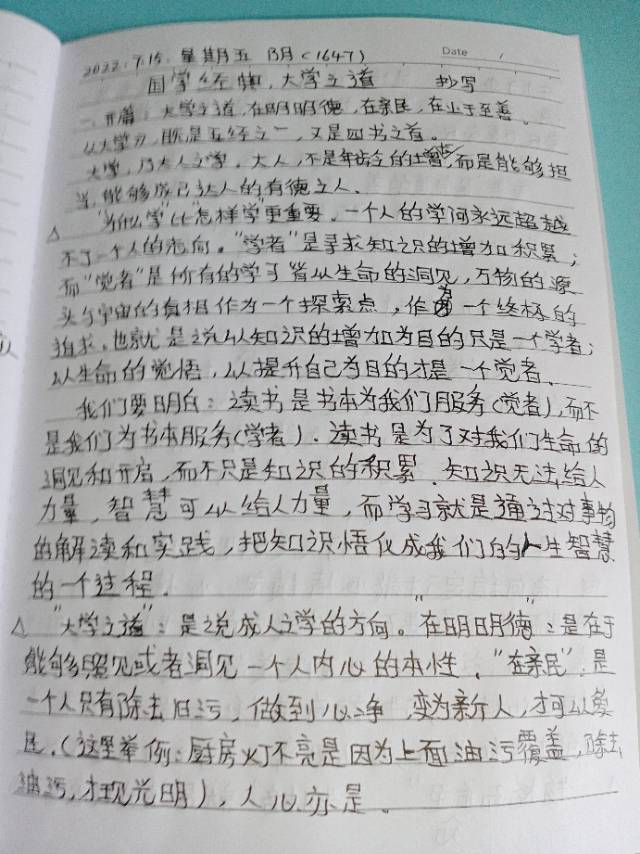 2022.7.15. 星期五 阴(1647)
Date /
国学经典,大学之道 抄写
一、开篇:大学之道,在明明德,在亲民,在止于至善。
从大学为,既是五经之一,又是四书之首。
大学,乃大人之学。大人,不是年龄的增长,而是能够担
当,能够成己达人的有德之人。
△ "为什么学"比"怎样学"更重要。一个人的学问永远超越
不了一个人的志向。"学者"是寻求知识的增加积累;
而"觉者"是所有的学习皆从生命的洞见,万物的源
头与宇宙的真相作为一个探索点,作为一个终极的
追求。也就是说以知识的增加为目的只是一个学者;
以生命的觉悟,以提升自己为目的才是一个觉者。
我们要明白:读书是书本为我们服务(觉者),而不
是我们为书本服务(学者)。读书是为了对我们生命的
洞见和开启,而不只是知识的积累。知识无法给人
力量,智慧可以给人力量,而学习就是通过对事物
的解读和实践,把知识悟化成我们的人生智慧
的一个过程.
△ "大学之道":是说成人之学的方向。"在明明德":是在于
能够照见或者洞见一个人内心的本性。"在亲民":是
一个人只有除去旧污,做到心净,变为新人,才可以
是.(这里举例:厨房灯不亮是因为上面油污覆盖,除去
油污,才现光明),人心亦是。